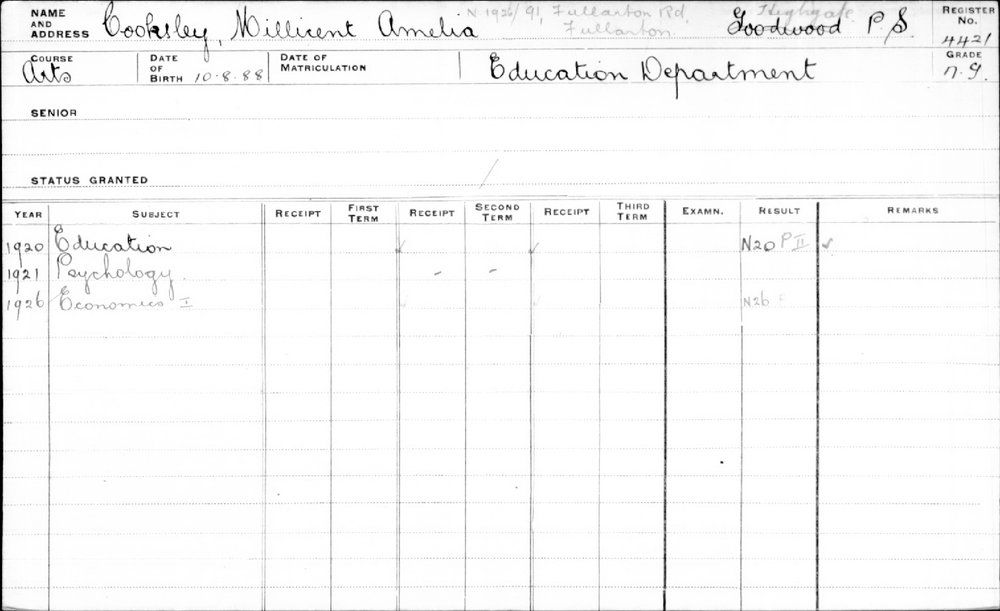 NAME AND ADDRESS Cooksley, Millicent Amelia N 1926/91, Fullarton Rd, Fullarton. Highgate Goodwood P.S. REGISTER No. 4421
COURSE Arts DATE OF BIRTH 10.8.88 DATE OF MATRICULATION Education Department GRADE n.g.
SENIOR
STATUS GRANTED
YEAR SUBJECT RECEIPT FIRST TERM RECEIPT SECOND TERM RECEIPT THIRD TERM EXAMN. RESULT REMARKS
1920 Education ✓ ✓ N20 P II ✓
1921 Psychology. - -
1926 Economics I N26